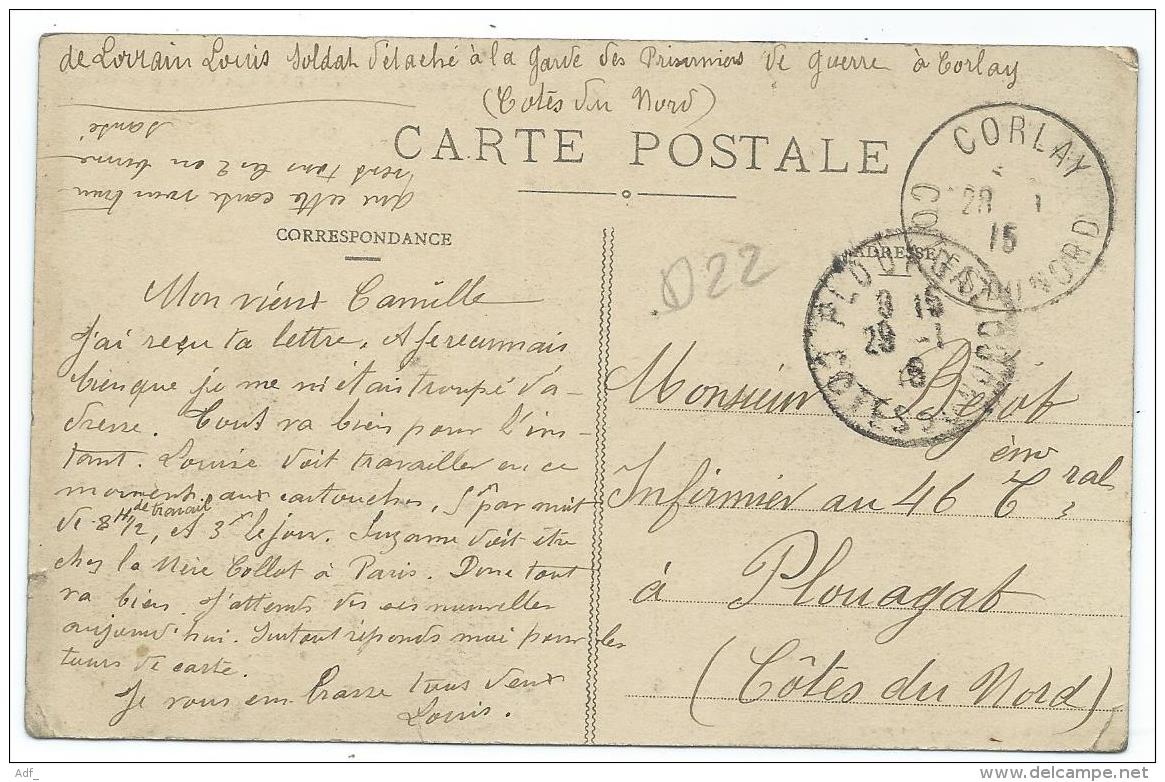 de Lorrain Louis Soldat détaché à la Garde des Prisonniers de Guerre à Corlay
(Côtes du Nord)
que cette carte vous trouve
tous les 2 en bonne
santé
CARTE POSTALE
CORRESPONDANCE
ADRESSE
CORLAY
28 1
15
COTES DU NORD
PLOUAGAT
9 15
29 -1
15
COTES DU NORD
D22
Mon vieux Camille
J'ai reçu ta lettre, et
bien que je me m'étais trompé d'a-
dresse. Tout va bien pour l'ins-
tant. Louise doit travailler en ce
moment aux cartouches, 5f par nuit
de 8H 1/2 de travail, et 3f le jour. Suzanne doit être
chez la Mère Collot à Paris. Donc tout
va bien. J'attends des nouvelles
aujourd'hui. Surtout réponds moi pour les
tours de carte.
Je vous embrasse tous deux
Louis.
Monsieur
Infirmier au 46ème Tral
à Plouagat
(Côtes du Nord)
Adf_
www.delcampe.net